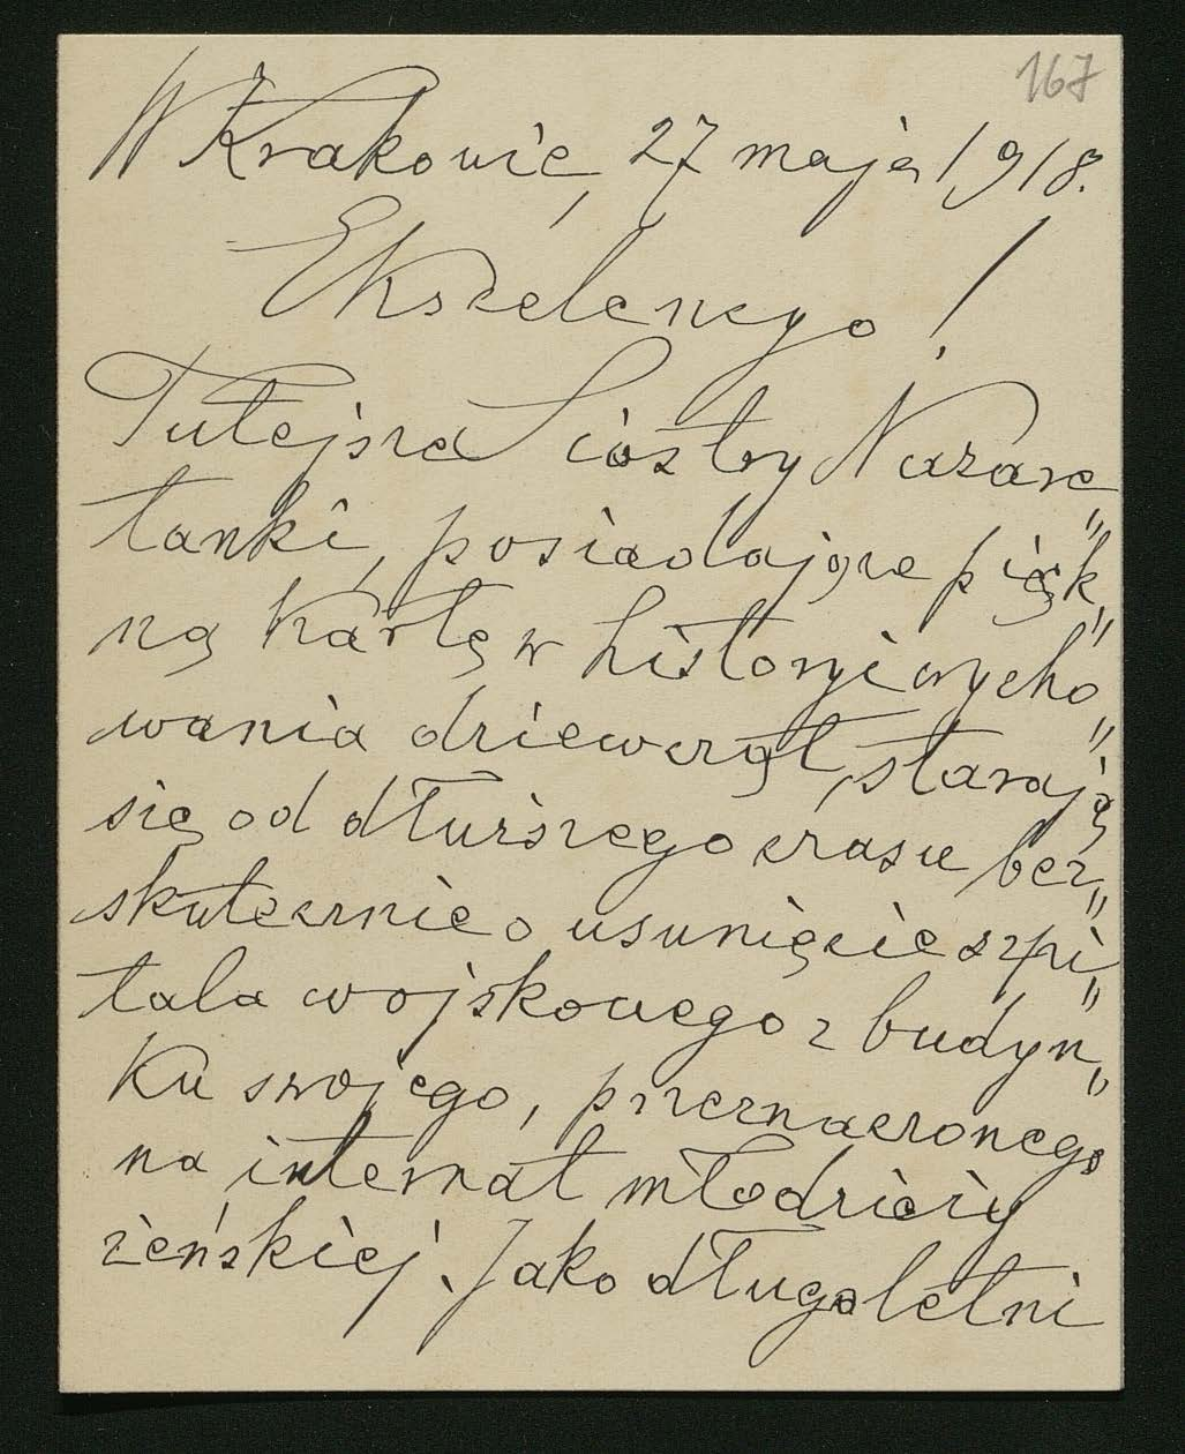 167
W Krakowie, 27 maja 1918.
Ekscelencyo!
Tutejsze Siostry Nazare„
tanki, posiadające pięk„
ną kartę w historyi wycho„
wania dziewcząt, starają
się od dłuższego czasu bez„
skutecznie o usunięcie szpi„
tala wojskowego z budyn„
ku swojego, przeznaczonego
na internat młodzieży
żeńskiej. Jako długoletni